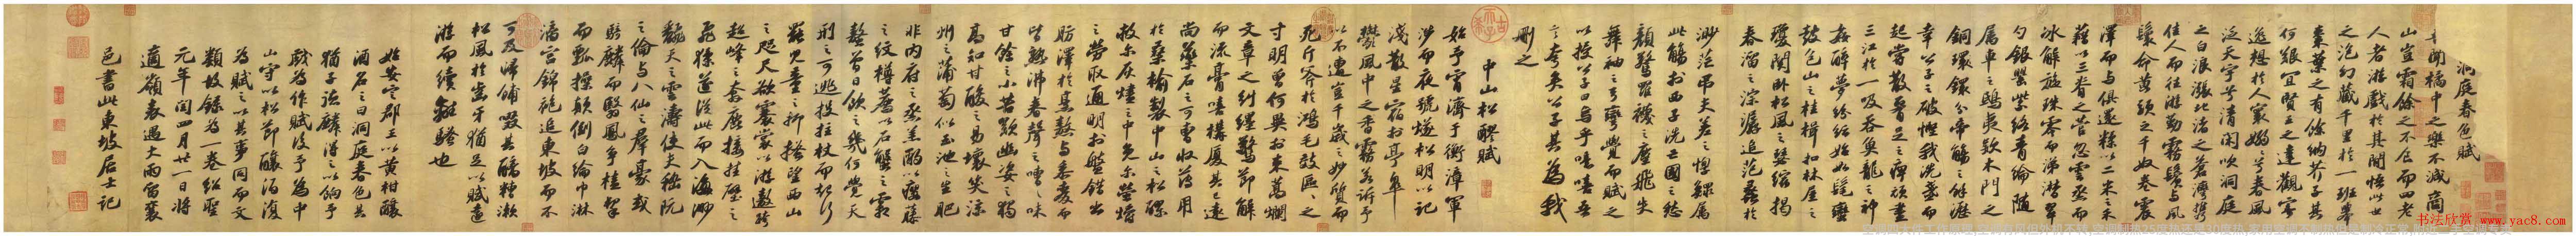 洞庭春色賦
吾聞橘中之樂不減商
山豈霜餘之不食而四老
人者游戲於其間悟此世
之泡幻藏千里於一班舉
棗葉之有餘納芥子其
何艱宜賢王之達觀寄
逸想於人寰嫋嫋兮春風
泛天宇兮清閑吹洞庭
之白浪漲北渚之蒼灣攜
佳人而往游勤霧鬢與風
鬟命黃頭之千奴卷震
澤而與俱還糅以二米之禾
藉以三脊之菅忽雲烝而
冰解旋珠零而涕潸翠
勺銀罌紫絡青綸隨
屬車之鴟夷款木門之
銅鐶分帝觴之餘瀝
幸公子之破慳我洗盞而
起嘗散腰足之痺頑盡
三江於一吸吞魚龍之神
姦醉夢紛紜始如髦蠻
鼓包山之桂楫扣林屋之
瓊關臥松風之瑟縮揭
春溜之淙潺追范蠡於
渺茫吊夫差之惸鰥屬
此觴於西子洗亡國之愁
顏驚羅襪之塵飛失
舞袖之弓彎覺而賦之
以授公子曰烏乎噫嘻吾
言夸矣公子其為我
刪之
中山松醪賦
始予宵濟于衡漳軍
涉而夜號燧松明以記
淺散星宿於亭皋
鬱風中之香霧若訴予
以不遭豈千歲之妙質而
死斤斧於鴻毛效區區之
寸明曾何異於束蒿爛
文章之糾纆驚節解
而流膏嘻構廈其已遠
尚藥石之可曹收薄用
於桑榆製中山之松醪
救爾灰燼之中免爾螢爝
之勞取通明於盤錯出
肪澤於烹熬與黍麥而
皆熟沸舂聲之嘈嘈味
甘餘之小苦歎幽姿之獨
高知甘酸之易壞笑涼
州之蒲萄似玉池之生肥
非內府之烝羔酌以癭藤
之紋樽薦以石蟹之霜
螯曾日飲之幾何覺天
刑之可逃投拄杖而起行
罷兒童之抑搔望西山
之咫尺欲褰裳以游遨跨
超峰之奔鹿接挂壁之
飛猱遂從此而入海渺
翻天之雲濤使夫嵇阮
之倫與八仙之群豪或
騎麟而翳鳳爭榼挈
而瓢操顛倒白綸巾淋
漓宮錦袍追東坡而不
可及歸餔歠其醨糟漱
松風於齒牙猶足以賦遠
游而續離騷也
始安定郡王以黃柑釀
酒名之曰洞庭春色其
猶子德麟得之以餉予
戲為作賦後予為中
山守以松節釀酒復
為賦之以其事同而文
類故錄為一卷紹聖
元年閏四月廿一日將
適嶺表遇大雨留襄
邑書此東坡居士記
书法欣赏 www.yac8.com